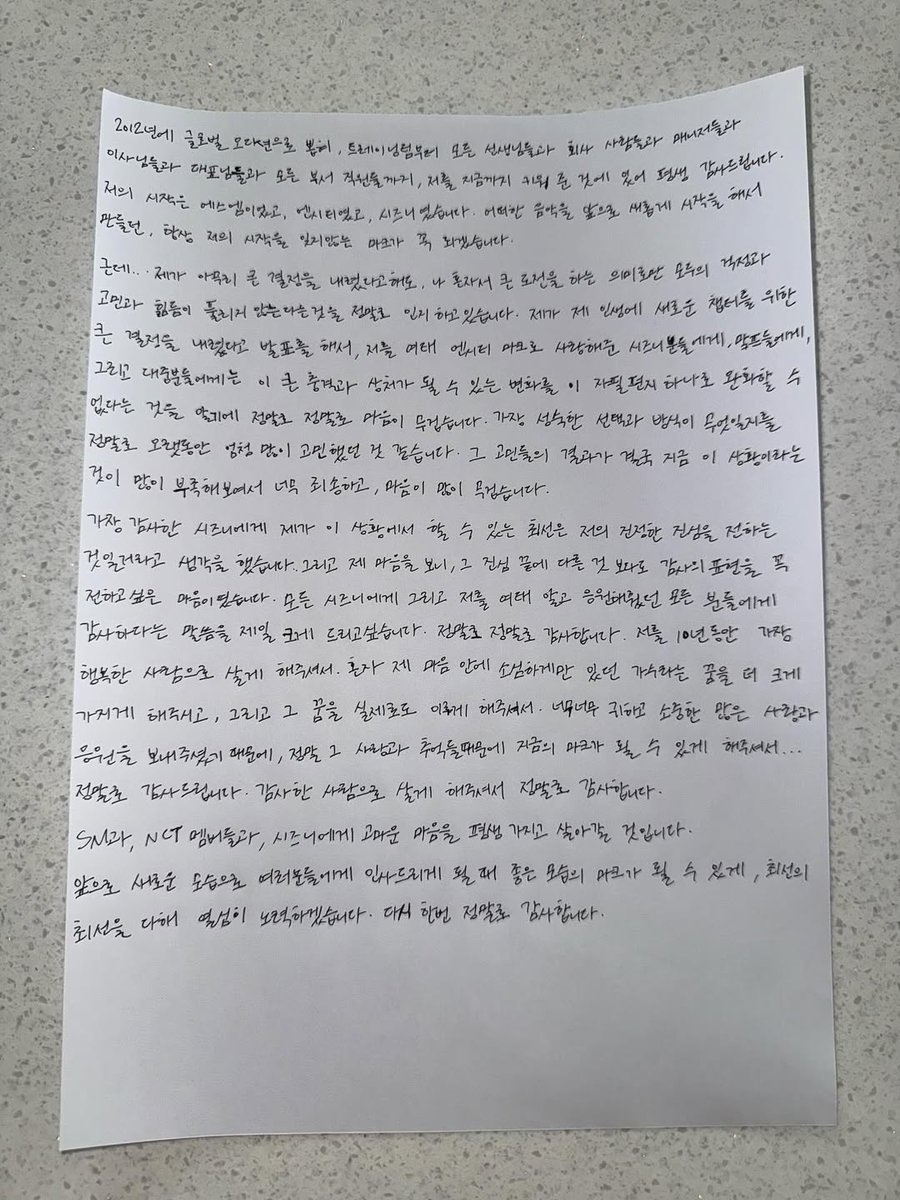 2012년에 글로벌 오디션으로 뽑혀, 트레이닝팀부터 모든 선생님들과 회사 사람들과 매니저들과
이사님들과 대표님들과 모든 부서 직원들까지, 저를 지금까지 키워 준 것에 있어 평생 감사드립니다.
저의 시작은 에스엠이였고, 엔시티였고, 시즈니였습니다. 어떠한 음악을 앞으로 새롭게 시작을 해서
만들던, 항상 저의 시작을 잊지않는 마크가 꼭 되겠습니다.
근데... 제가 아무리 큰 결정을 내렸다고해도, 나 혼자서 큰 도전을 하는 의미로만 모두의 걱정과
고민과 힘듦이 풀리지 않는다는것을 정말로 인지하고있습니다. 제가 제 인생에 새로운 챕터를 위한
큰 결정을 내렸다고 발표를 해서, 저를 여태 엔시티 마크로 사랑해준 시즈니분들에게, 말프들에게,
그리고 대중분들에게는 이 큰 충격과 상처가 될 수 있는 변화를 이 자필편지 하나로 완화할 수
없다는 것을 알기에 정말로 정말로 마음이 무겁습니다. 가장 성숙한 선택과 방식이 무엇일지를
정말로 오랫동안 엄청 많이 고민했던 것 같습니다. 그 고민들의 결과가 결국 지금 이 상황이라는
것이 많이 부족해보여서 너무 죄송하고, 마음이 많이 무겁습니다.
가장 감사한 시즈니에게 제가 이 상황에서 할 수 있는 최선은 저의 진정한 진심을 전하는
것일거라고 생각을 했습니다. 그리고 제 마음을 보니, 그 진심 끝에 다른 것 보다도 감사의 표현을 꼭
전하고싶은 마음이였습니다. 모든 시즈니에게 그리고 저를 여태 알고 응원해줬던 모든 분들에게
감사하다는 말씀을 제일 크게 드리고싶습니다. 정말로 정말로 감사합니다. 저를 10년동안 가장
행복한 사람으로 살게 해주셔서. 혼자 제 마음 안에 소심하게만 있던 가수라는 꿈을 더 크게
가지게 해주시고, 그리고 그 꿈을 실제로도 이루게 해주셔서. 너무너무 귀하고 소중한 많은 사랑과
응원을 보내주셨기 때문에, 정말 그 사랑과 추억들때문에 지금의 마크가 될 수 있게 해주셔서...
정말로 감사드립니다. 감사한 사람으로 살게 해주셔서 정말로 감사합니다.
SM과, NCT 멤버들과, 시즈니에게 고마운 마음을 평생 가지고 살아갈 것입니다.
앞으로 새로운 모습으로 여러분들에게 인사드리게 될 때 좋은 모습의 마크가 될 수 있게, 최선의
최선을 다해 열심히 노력하겠습니다. 다시 한번 정말로 감사합니다.